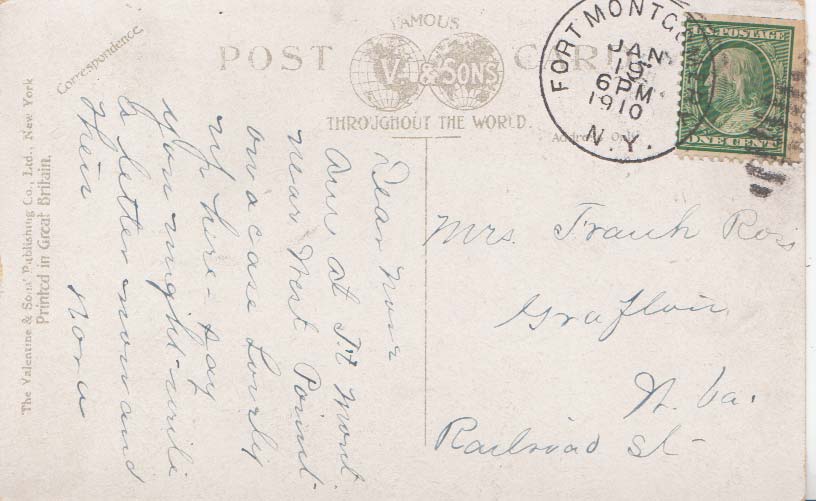 Correspondence.
FAMOUS
POST CARD
V. & SONS
THROUGHOUT THE WORLD.
Address Only
FORT MONTG
JAN
19
6 PM
1910
N.Y.
U.S. POSTAGE
ONE CENT
The Valentine & Sons' Publishing Co., Ltd., New York
Printed in Great Britain.
Dear
Am at Ft Mont.
near West Point
on a case Lovely
up here - say
you might write
a letter now and
then
Nora
Mrs. Frank Ross
Grafton
W. Va.
Railroad St